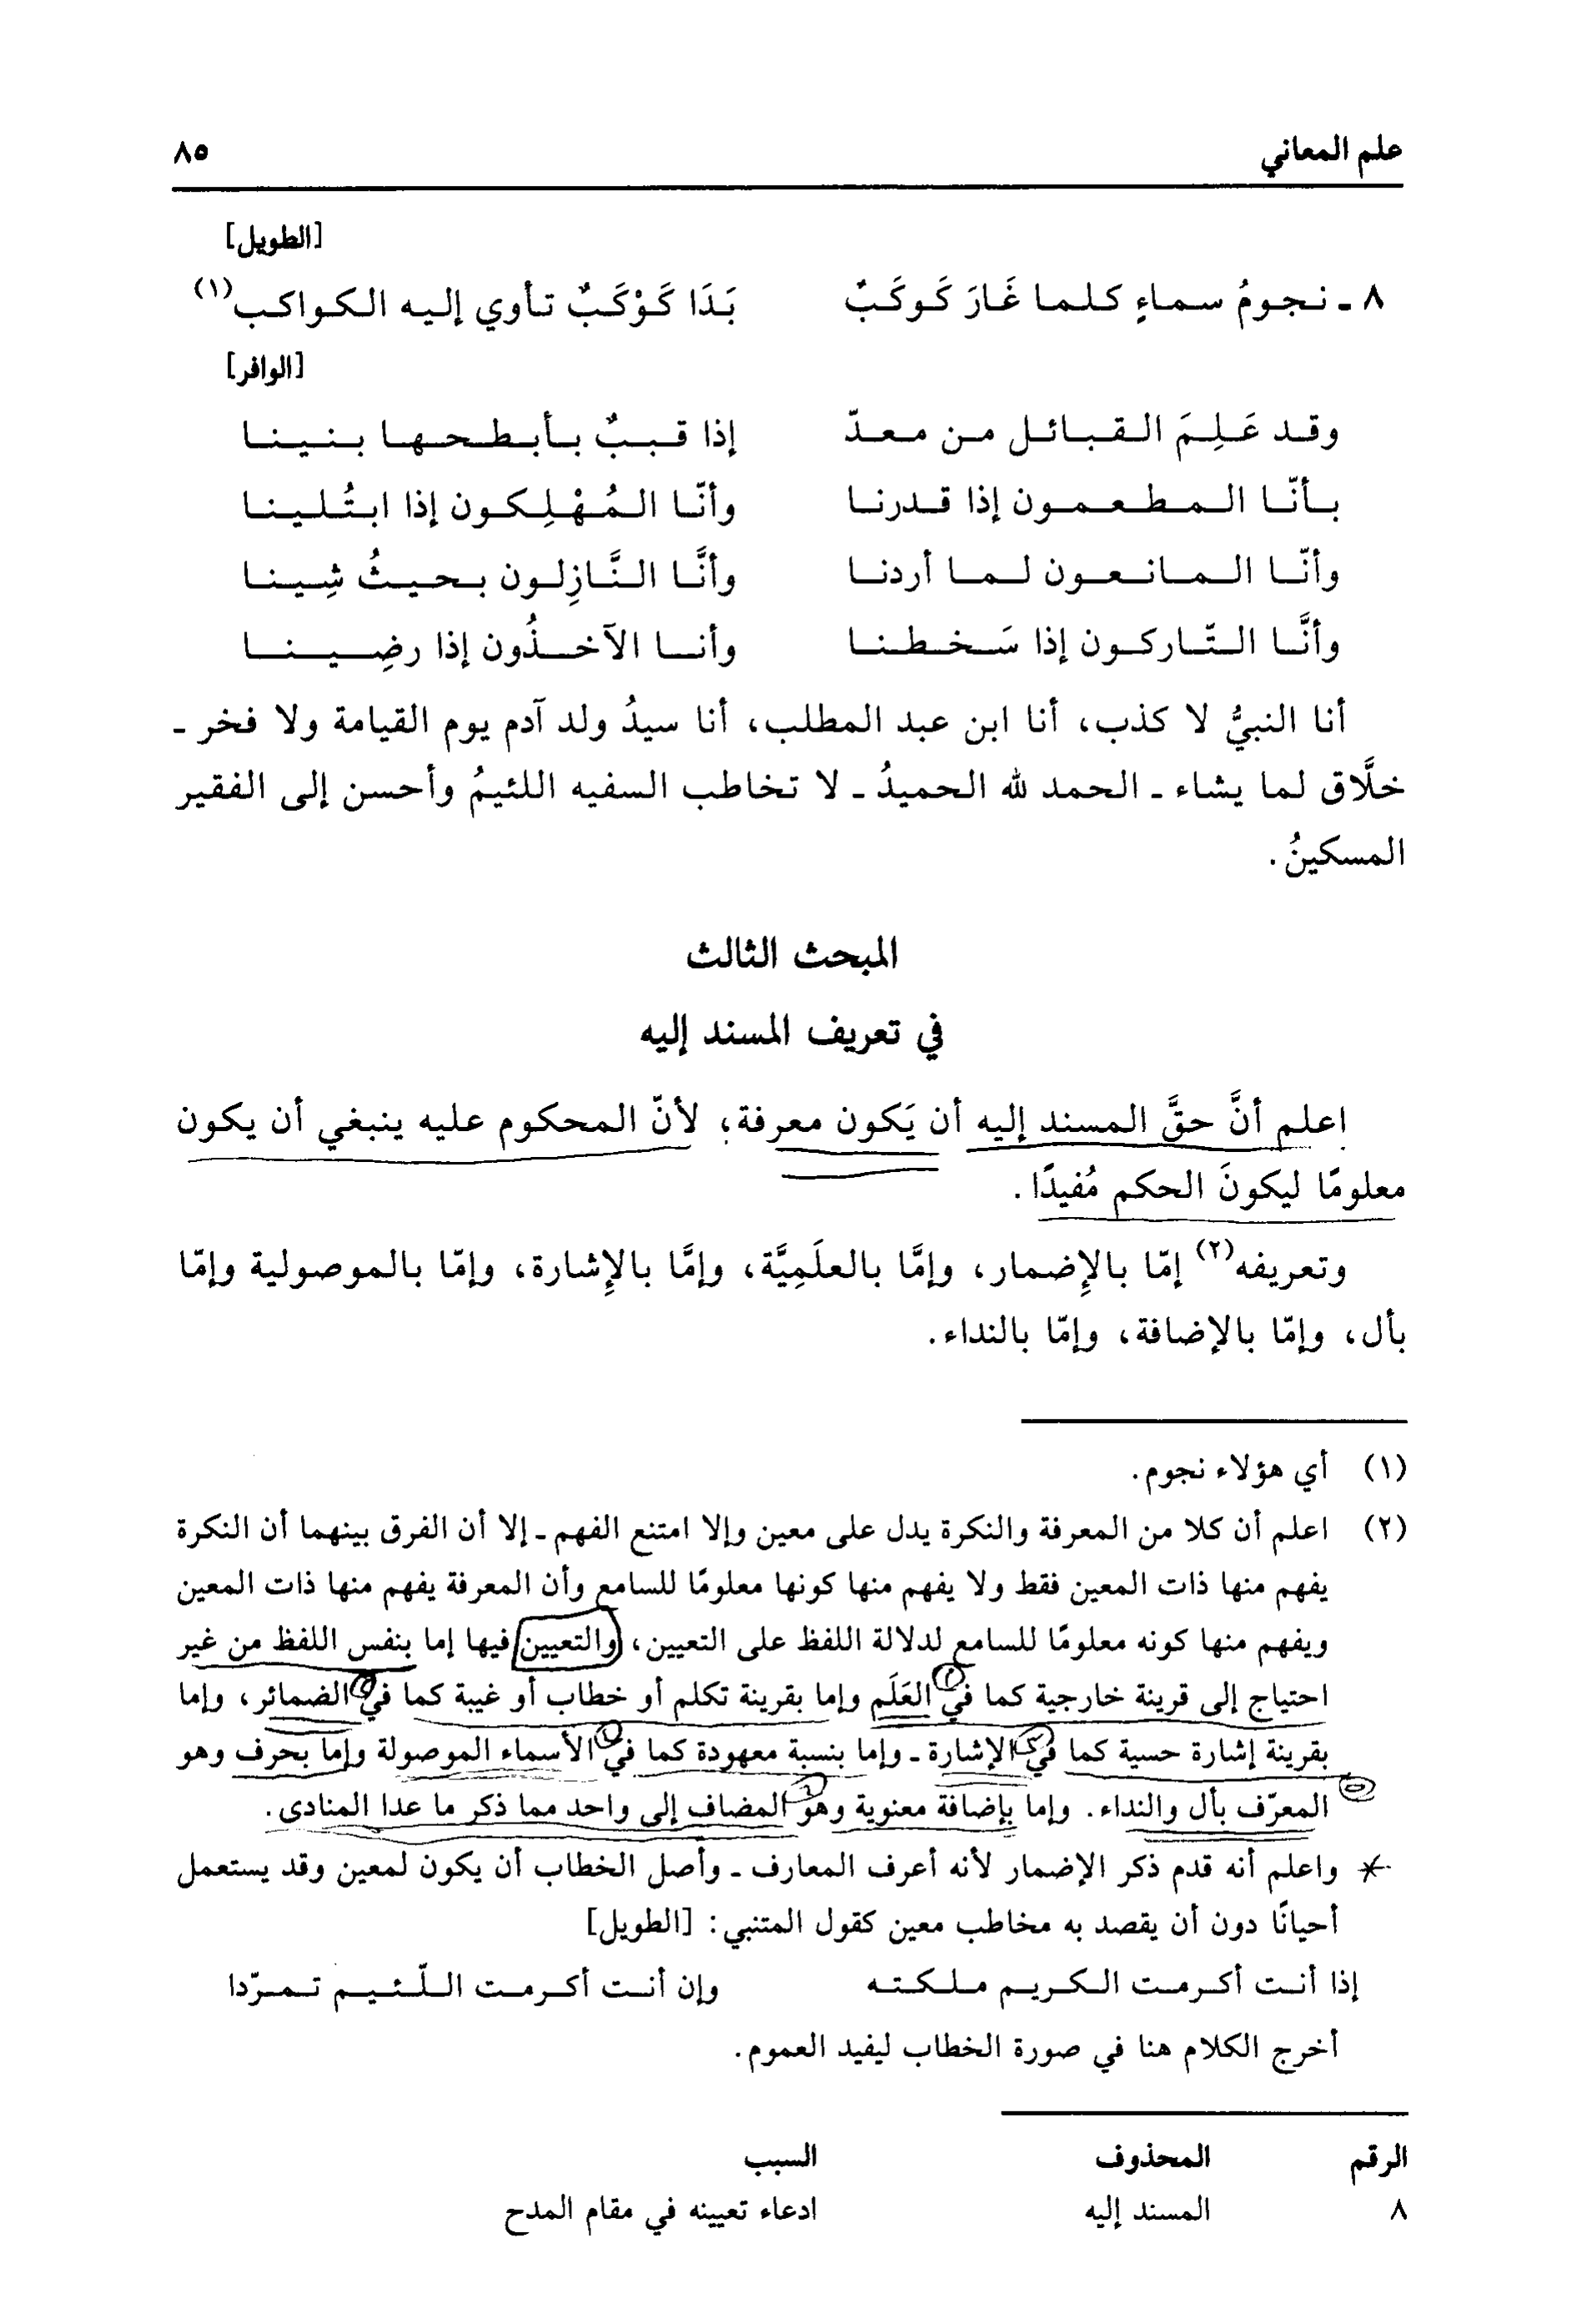 علم المعاني ٨٥
[الطويل]
٨ ـ نجومُ سماءٍ كلما غَارَ كَوكَبٌ بَدَا كَوْكَبٌ تأوي إليه الكواكب(١)
[الوافر]
وقد عَلِمَ القبائل من معدّ إذا قببٌ بأبطحها بنينا
بأنّا المطعمون إذا قدرنا وأنّا المُهْلِكون إذا ابتُلينا
وأنّا المانعون لما أردنا وأنَّا النَّازِلون بحيثُ شِينا
وأنَّا التّاركون إذا سَخطنا وأنا الآخذُون إذا رضِينا
أنا النبيُّ لا كذب، أنا ابن عبد المطلب، أنا سيدُ ولد آدم يوم القيامة ولا فخر ـ
خلَّاق لما يشاء ـ الحمد لله الحميدُ ـ لا تخاطب السفيه اللئيمُ وأحسن إلى الفقير
المسكينُ.
المبحث الثالث
في تعريف المسند إليه
اعلم أنَّ حقَّ المسند إليه أن يَكون معرفة؛ لأنّ المحكوم عليه ينبغي أن يكون
معلومًا ليكونَ الحكم مُفيدًا.
وتعريفه(٢) إمّا بالإضمار، وإمَّا بالعلَمِيَّة، وإمَّا بالإشارة، وإمّا بالموصولية وإمّا
بأل، وإمّا بالإضافة، وإمّا بالنداء.
(١) أي هؤلاء نجوم.
(٢) اعلم أن كلا من المعرفة والنكرة يدل على معين وإلا امتنع الفهم ـ إلا أن الفرق بينهما أن النكرة
يفهم منها ذات المعين فقط ولا يفهم منها كونها معلومًا للسامع وأن المعرفة يفهم منها ذات المعين
ويفهم منها كونه معلومًا للسامع لدلالة اللفظ على التعيين، والتعيين فيها إما بنفس اللفظ من غير
احتياج إلى قرينة خارجية كما في العَلَم وإما بقرينة تكلم أو خطاب أو غيبة كما في الضمائر، وإما
بقرينة إشارة حسية كما في الإشارة ـ وإما بنسبة معهودة كما في الأسماء الموصولة وإما بحرف وهو
المعرّف بأل والنداء. وإما بإضافة معنوية وهو المضاف إلى واحد مما ذكر ما عدا المنادى.
* واعلم أنه قدم ذكر الإضمار لأنه أعرف المعارف ـ وأصل الخطاب أن يكون لمعين وقد يستعمل
أحيانًا دون أن يقصد به مخاطب معين كقول المتنبي: [الطويل]
إذا أنت أكرمت الكريم ملكته وإن أنت أكرمت اللّئيم تمرّدا
أخرج الكلام هنا في صورة الخطاب ليفيد العموم.
الرقم المحذوف السبب
٨ المسند إليه ادعاء تعيينه في مقام المدح